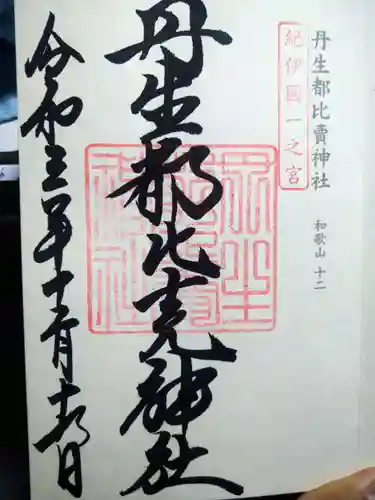 丹生都比賣神社
和歌山 十二
紀伊國一之宮
丹生都比売神社
令和三年十一月十九日